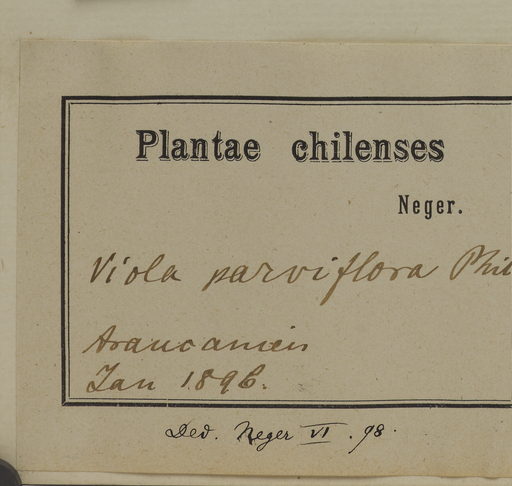 Plantae chilenses
Neger.
Viola parviflora Phil
Araucanien
Jan 1896.
Ded. Neger VI. 98.